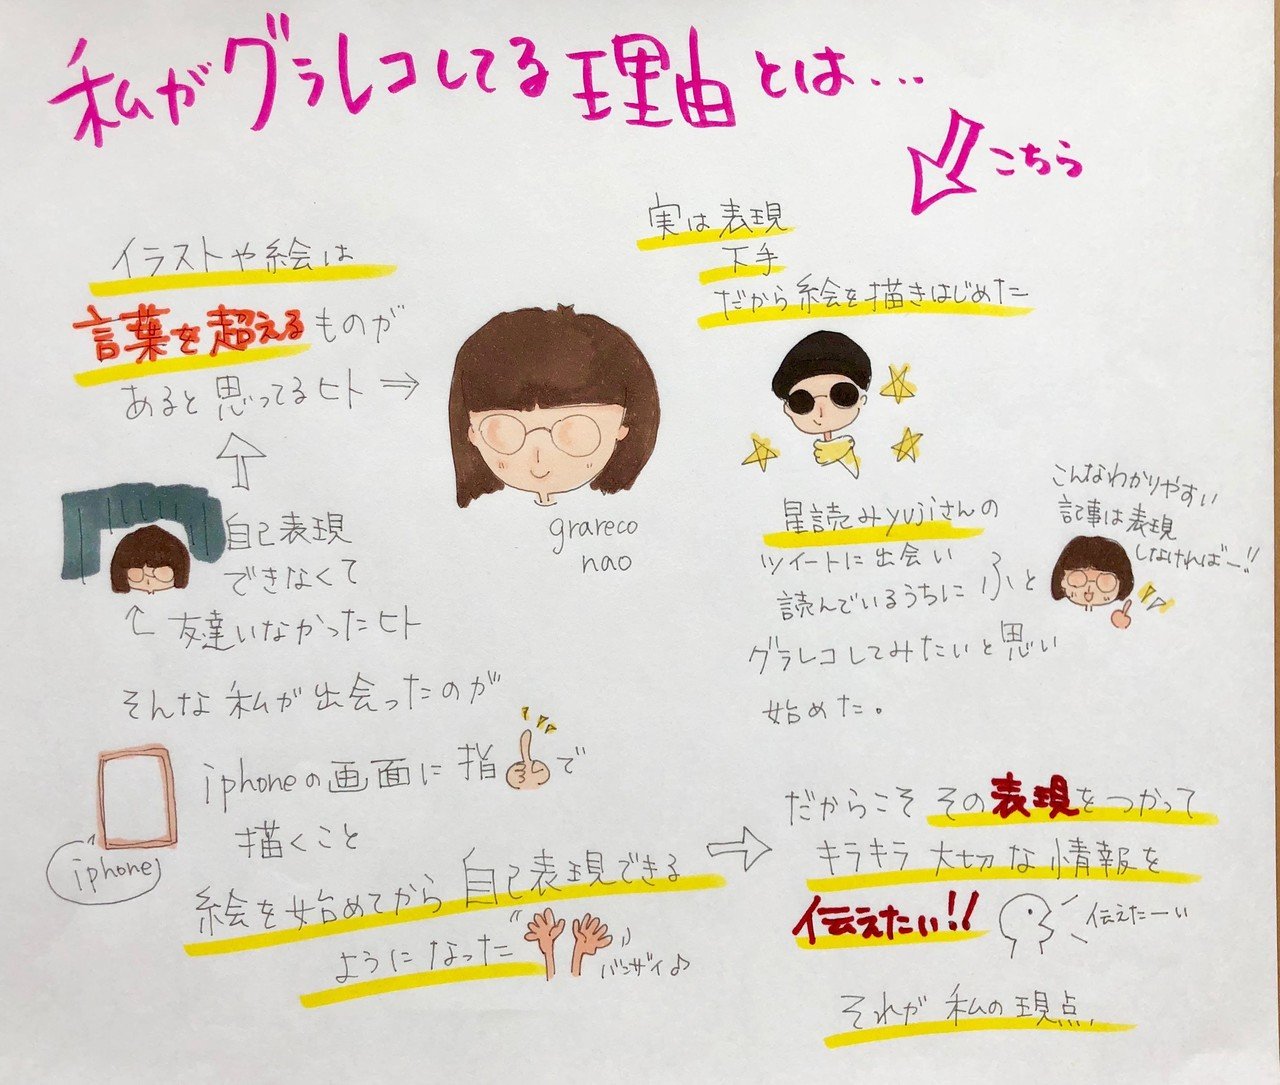 私がグラレコしてる理由とは...
こちら
実は表現
下手
だから絵を描きはじめた
イラストや絵は
言葉を超えるものが
あると思ってるヒト⇒
grareco
nao
自己表現
できなくて
友達いなかったヒト
そんな私が出会ったのが
iphoneの画面に指で
描くこと
iphone
絵を始めてから自己表現できる
ようになった
バンザイ♪
星読みyujiさんの
ツイートに出会い
読んでいるうちにふと
グラレコしてみたいと思い
始めた。
こんなわかりやすい
記事は表現
しなければー!!
だからこそその表現をつかって
キラキラ大切な情報を
伝えたい!!
伝えたーい
それが私の現点